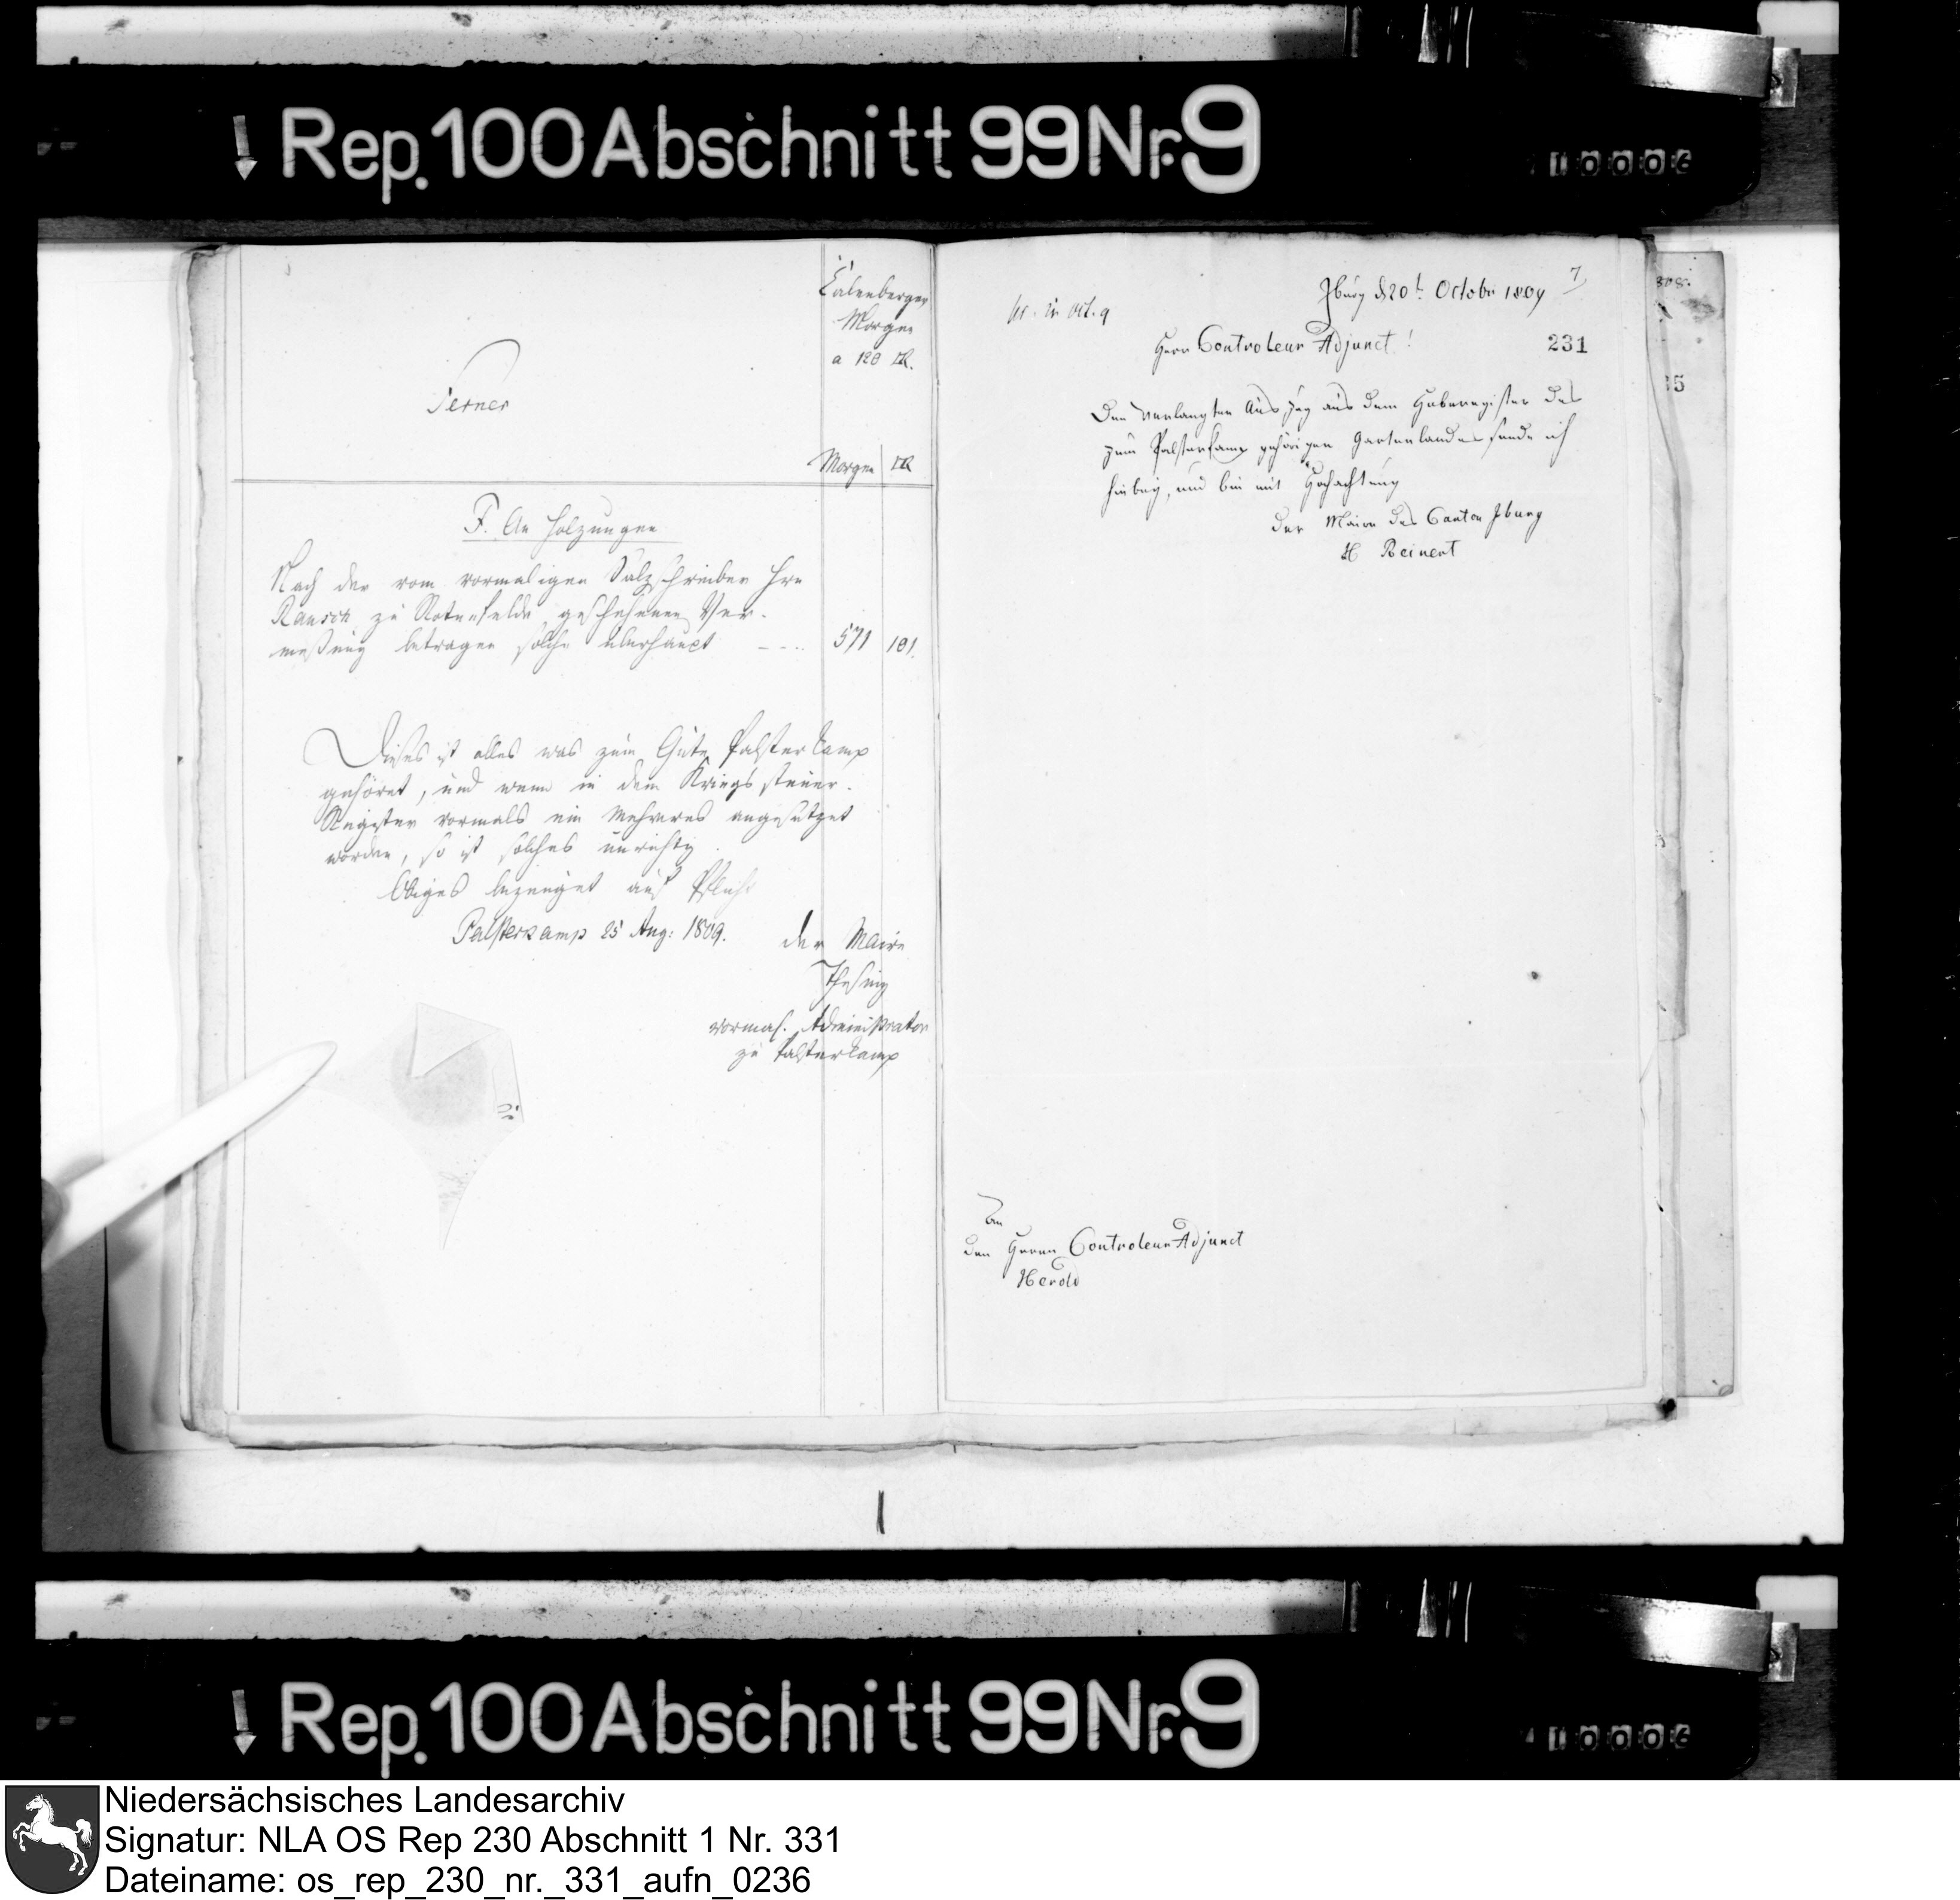 Rep. 100 Abschnitt 99 Nr. 9
Calenberger
Morgen
a 120 □R.
Ferner
Morgen □R
F. An Holzungen
Nach der vom vormaligen Salzschreiber Hrn
Rausch zu Rotenfelde geschehenen Ver-
meßung betragen solche überhaupt ---- 571 101.
Dieses ist alles was zum Gute Palsterkamp
gehöret, und wenn in dem Kriegssteuer-
Register vormals ein Mehreres angesetzet
worden, so ist solches unrichtig.
Obiges bezeuget auf Pflicht
Palsterkamp 25 Aug: 1809. der Maire
vormal. Administrator
zu Palsterkamp
7
Iburg d 20t Octobr 1809
231
Herr Controleur Adjunct!
Den verlangten Auszug aus dem Heberegister des
zum Palsterkamp gehörigen Gartenlandes sende ich
hiebey, und bin mit Hochachtung
Der Maire des Canton Iburg
H Reinert
An
den Herrn Controleur Adjunct
Herold
15
Rep. 100 Abschnitt 99 Nr. 9
Niedersächsisches Landesarchiv
Signatur: NLA OS Rep 230 Abschnitt 1 Nr. 331
Dateiname: os_rep_230_nr._331_aufn_0236